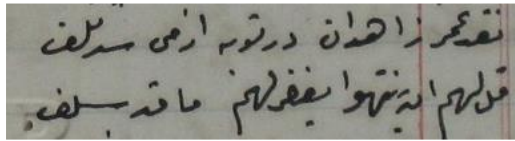 نقد عمر زاهدان در توبه از می شد تلف
قل لهم ان ینتهوا یغفر لهم ما قد سلف